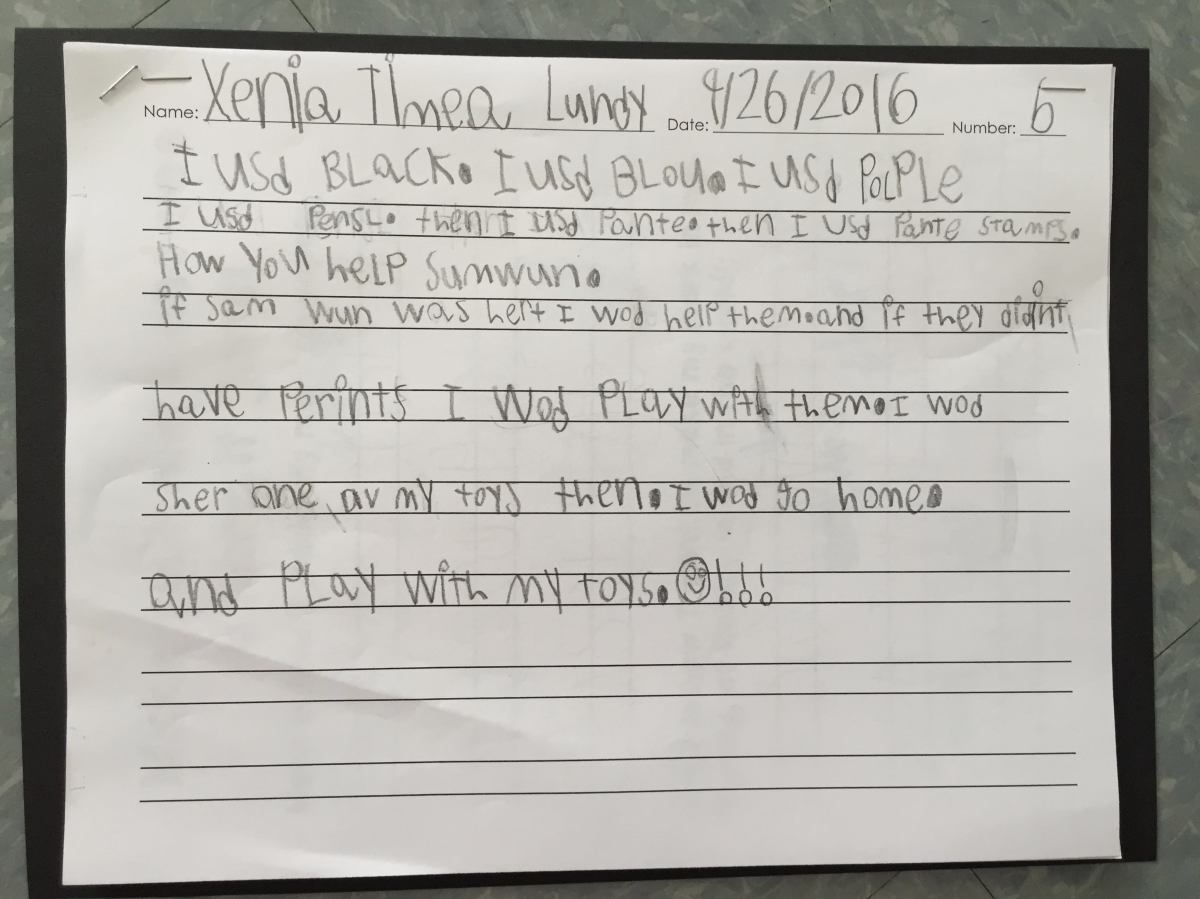 Name: Xenia Timea Lundy Date: 9/26/2016 Number: 5
I USd BLaCK. I USd BLOU. I USd POLPLe
I Usd Pensl. then I USd Pante. then I Usd Pante stamps.
How You help Sumwun.
if sam wun was hert I wod help them. and if they didint
have Perints I Wod PLAY with them. I wod
sher one av my toys then. I wod go home.
and PLay with my toys. ☺!!!